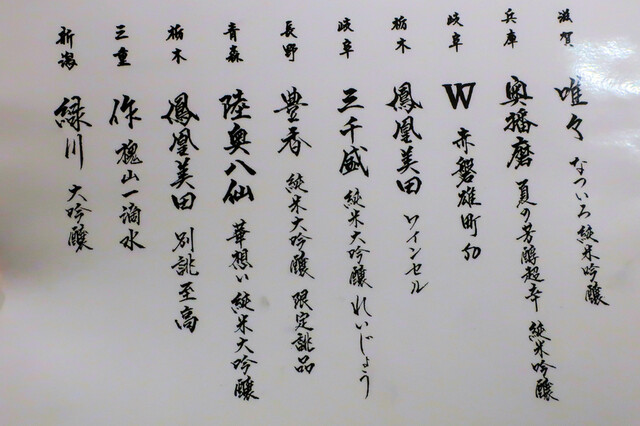 滋賀 唯々 なついろ純米吟醸
兵庫 奥播磨 夏の芳醇超辛 純米吟醸
岐阜 W 赤磐雄町50
栃木 鳳凰美田 ワインセル
岐阜 三千盛 純米大吟醸 れいじょう
長野 豊香 純米大吟醸 限定誂品
青森 陸奥八仙 華想い 純米大吟醸
栃木 鳳凰美田 別誂至高
三重 作 槐山一滴水
新潟 緑川 大吟醸